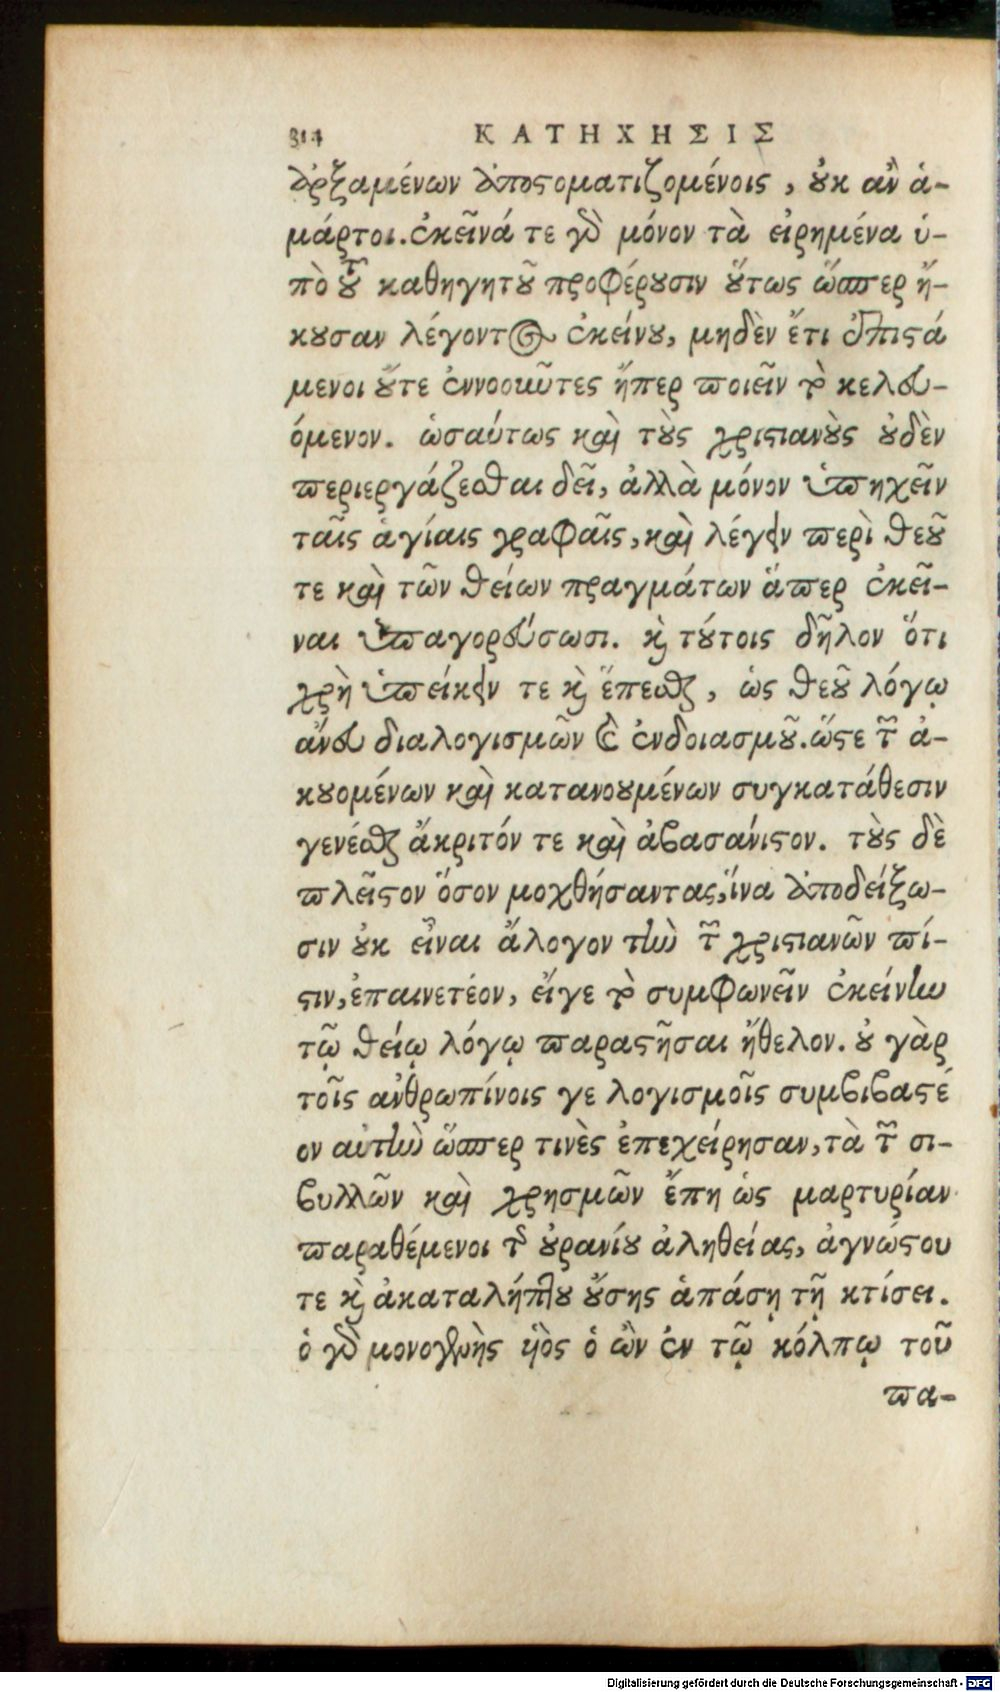 314 ΚΑΤΗΧΗΣΙΣ
ἀρξαμένων ἀποστοματιζομένοις, οὐκ ἂν ἁ-
μάρτοι. ἐκεῖνά τε γὰρ μόνον τὰ εἰρημένα ὑ-
πὸ τοῦ καθηγητοῦ προφέρουσιν οὕτως ὥσπερ ἤ-
κουσαν λέγοντος ἐκείνου, μηδὲν ἔτι ἐπιστά
μενοι οὔτε ἐννοοῦντες ἤπερ ποιεῖν τὸ κελευ-
όμενον. ὡσαύτως καὶ τοὺς χριστιανοὺς οὐδὲν
περιεργάζεσθαι δεῖ, ἀλλὰ μόνον ὑπηχεῖν
ταῖς ἁγίαις γραφαῖς, καὶ λέγειν περὶ θεοῦ
τε καὶ τῶν θείων πραγμάτων ἅπερ ἐκεῖ-
ναι ὑπαγορεύσωσι. καὶ τούτοις δῆλον ὅτι
χρὴ ὑπείκειν τε καὶ ἕπεσθαι, ὡς θεοῦ λόγῳ
ἄνευ διαλογισμῶν καὶ ἐνδοιασμοῦ. ὥστε τῶν ἀ-
κουομένων καὶ κατανουμένων συγκατάθεσιν
γενέσθαι ἄκριτόν τε καὶ ἀβασάνιστον. τοὺς δὲ
πλεῖστον ὅσον μοχθήσαντας, ἵνα ἀποδείξω-
σιν οὐκ εἶναι ἄλογον τὴν τῶν χριστιανῶν πί-
στιν, ἐπαινετέον, εἴγε τὸ συμφωνεῖν ἐκείνην
τῷ θείῳ λόγῳ παραστῆσαι ἤθελον. οὐ γὰρ
τοῖς ἀνθρωπίνοις γε λογισμοῖς συμβιβαστέ
ον αὐτὴν ὥσπερ τινὲς ἐπεχείρησαν, τὰ τῶν σι-
βυλλῶν καὶ χρησμῶν ἔπη ὡς μαρτυρίαν
παραθέμενοι τῆς οὐρανίου ἀληθείας, ἀγνώστου
τε καὶ ἀκαταλήπτου οὔσης ἁπάσῃ τῇ κτίσει.
ὁ γὰρ μονογενὴς υἱὸς ὁ ὢν ἐν τῷ κόλπῳ τοῦ
πα-
Digitalisierung gefördert durch die Deutsche Forschungsgemeinschaft - DFG